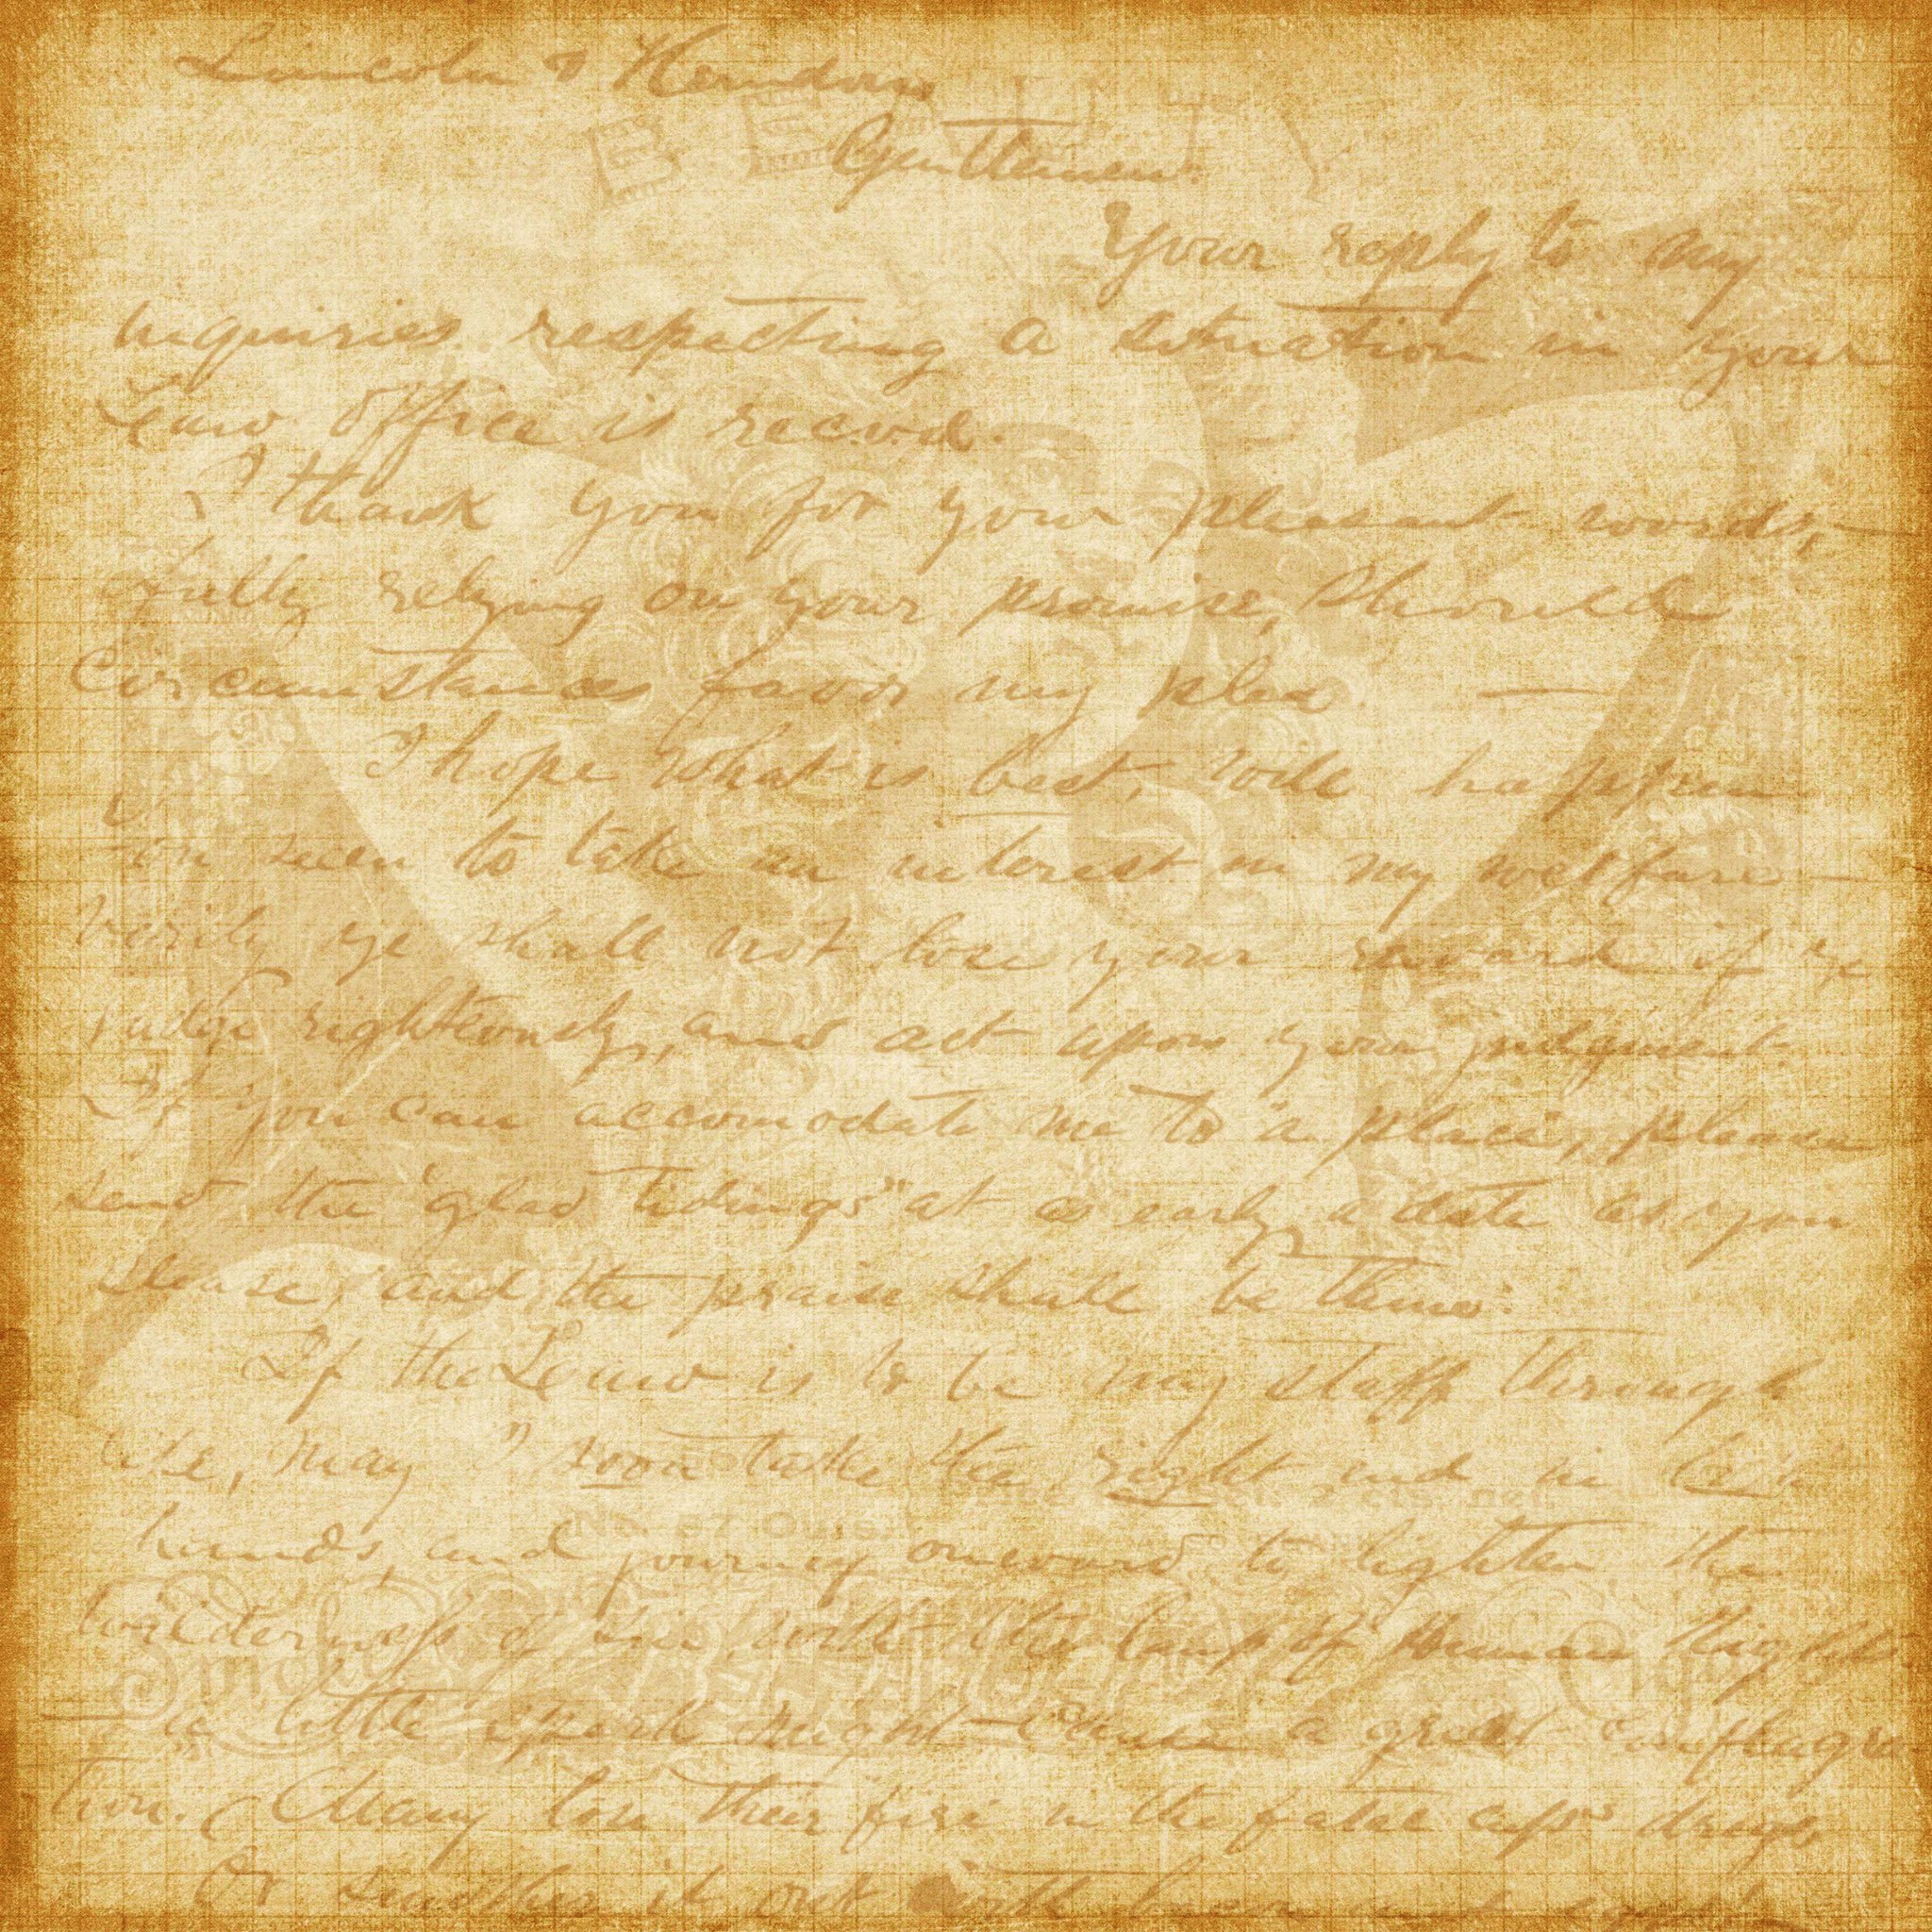 Lincoln & Herndon
Gentlemen:
Your reply to my
inquiries respecting a situation in your
Law Office is recevd.
I thank you for your pleasant words,—
fully relying on your promise, Should
Circumstances favor my plea. —
I hope what is best, will happen
You seem to take an interest in my welfare —
Verily ye shall not lose your reward if ye
judge righteously, and act upon your judgment.
If you can accomodate me to a place, please
send the "glad tidings" at as early a date as you
please, and the praise shall be thine:
If the Law is to be my staff through
life, may I soon take the right end in
hands, and journey onward to lighten the
wilderness of sin with the lamp of human
a little spark might cause a great conflagra
tion. Many lose their fire in the fatal cup's dregs,
Or it out with
No. 57
Smoke